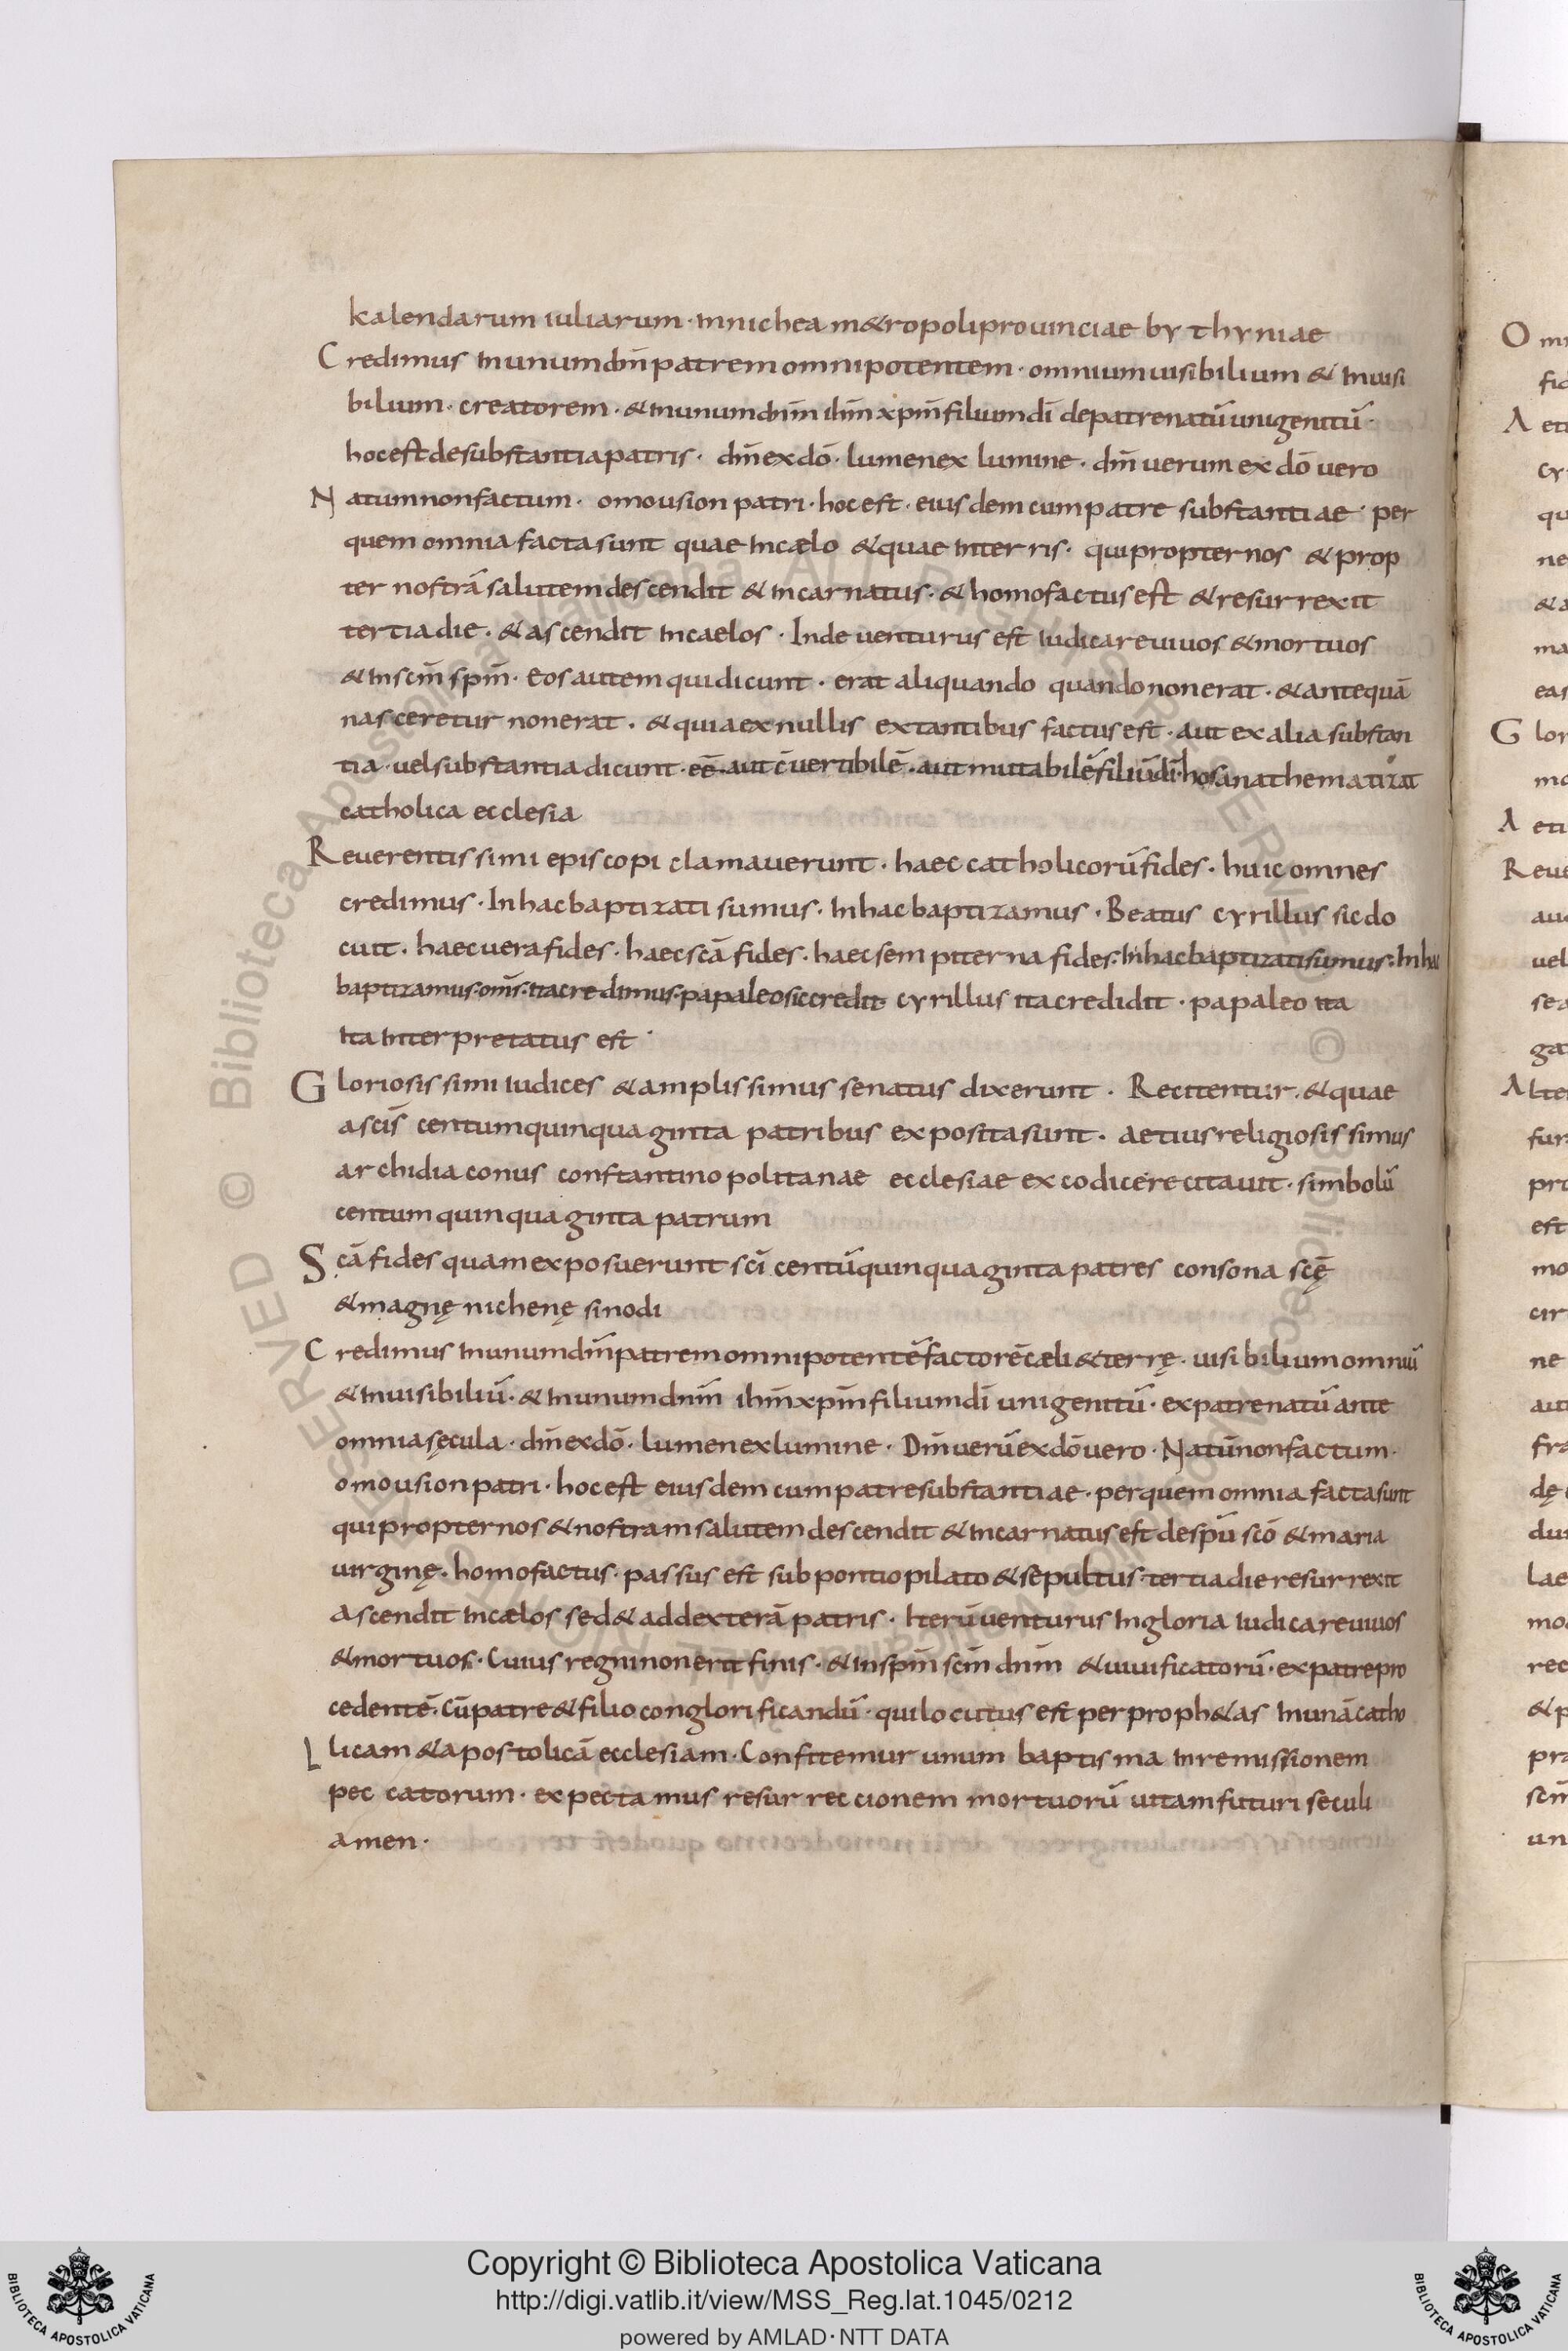 kalendarum iuliarum · in nichea m&ropoli prouinciae bythyniae
Credimus in unum dm̄ patrem omnipotentem · omnium uisibilium & inuisi
bilium · creatorem · & in unum dnm̄ ihm̄ xpm̄ filium dī de patre natū unigenitū ·
hoc est de substantia patris · dm̄ ex dō · lumen ex lumine · dm̄ uerum ex dō uero
Natum non factum · omousion patri · hoc est · eiusdem cum patre substantiae · per
quem omnia facta sunt quae in cælo & quae in terris · qui propter nos & prop
ter nostrā salutem descendit & incarnatus · & homo factus est & resurrexit
tertia die · & ascendit in caelos · Inde uenturus est iudicare uiuos & mortuos
& in scm̄ spm̄ · Eos autem qui dicunt · erat aliquando quando non erat · & antequā
nasceretur non erat · & quia ex nullis extantibus factus est · aut ex alia substan
tia · uel substantia dicunt · eē · aut c̄uertibilē · aut mutabilē filiū dī · hos anathematizat
catholica ecclesia
Reuerentissimi episcopi clamauerunt · haec catholicorū fides · huic omnes
credimus · In hac baptizati sumus · In hac baptizamus · Beatus cyrillus sic do
cuit · haec uera fides · haec scā fides · haec sempiterna fides · In hac baptizati sumus · In hac
baptizamus · oms̄ · ita credimus · papa leo sic credit cyrillus ita credidit · papa leo ita
ita interpretatus est ·
Gloriosissimi iudices & amplissimus senatus dixerunt · Recitentur · & quae
a scīs centum quinquaginta patribus exposita sunt · aetius religiosissimus
archidiaconus constantinopolitanae ecclesiae ex codice recitauit · simbolū
centum quinquaginta patrum
Scā fides quam exposuerunt scī centū quinquaginta patres consona scę̄
& magnę nichenę sinodi
Credimus in unum dm̄ patrem omnipotentē factorē cæli & terrę · uisibilium omniū
& inuisibiliū · & in unum dnm̄ ihm̄ xpm̄ filium dī unigenitū · ex patre natū ante
omnia sęcula · dm̄ ex dō · lumen ex lumine · Dm̄ uerū ex dō uero · Natū non factum ·
omousion patri · hoc est eiusdem cum patre substantiae · per quem omnia facta sunt
qui propter nos & nostram salutem descendit & incarnatus est de spū scō & maria
uirginę · homo factus · passus est sub pontio pilato & sepultus · tertia die resurrexit
Ascendit in cælos sed& ad dexterā patris · Iterū uenturus in gloria iudicare uiuos
& mortuos · Cuius regni non erit finis · & in spm̄ scm̄ dnm̄ & uiuificatorū · ex patre pro
cedentē · Cū patre & filio conglorificandū · qui locutus est per proph&as In unā catho
licam & apostolicā ecclesiam · Confitemur unum baptisma in remissionem
peccatorum · expectamus resurreccionem mortuorū uitam futuri seculi
amen ·
Copyright © Biblioteca Apostolica Vaticana
http://digi.vatlib.it/view/MSS_Reg.lat.1045/0212
powered by AMLAD · NTT DATA